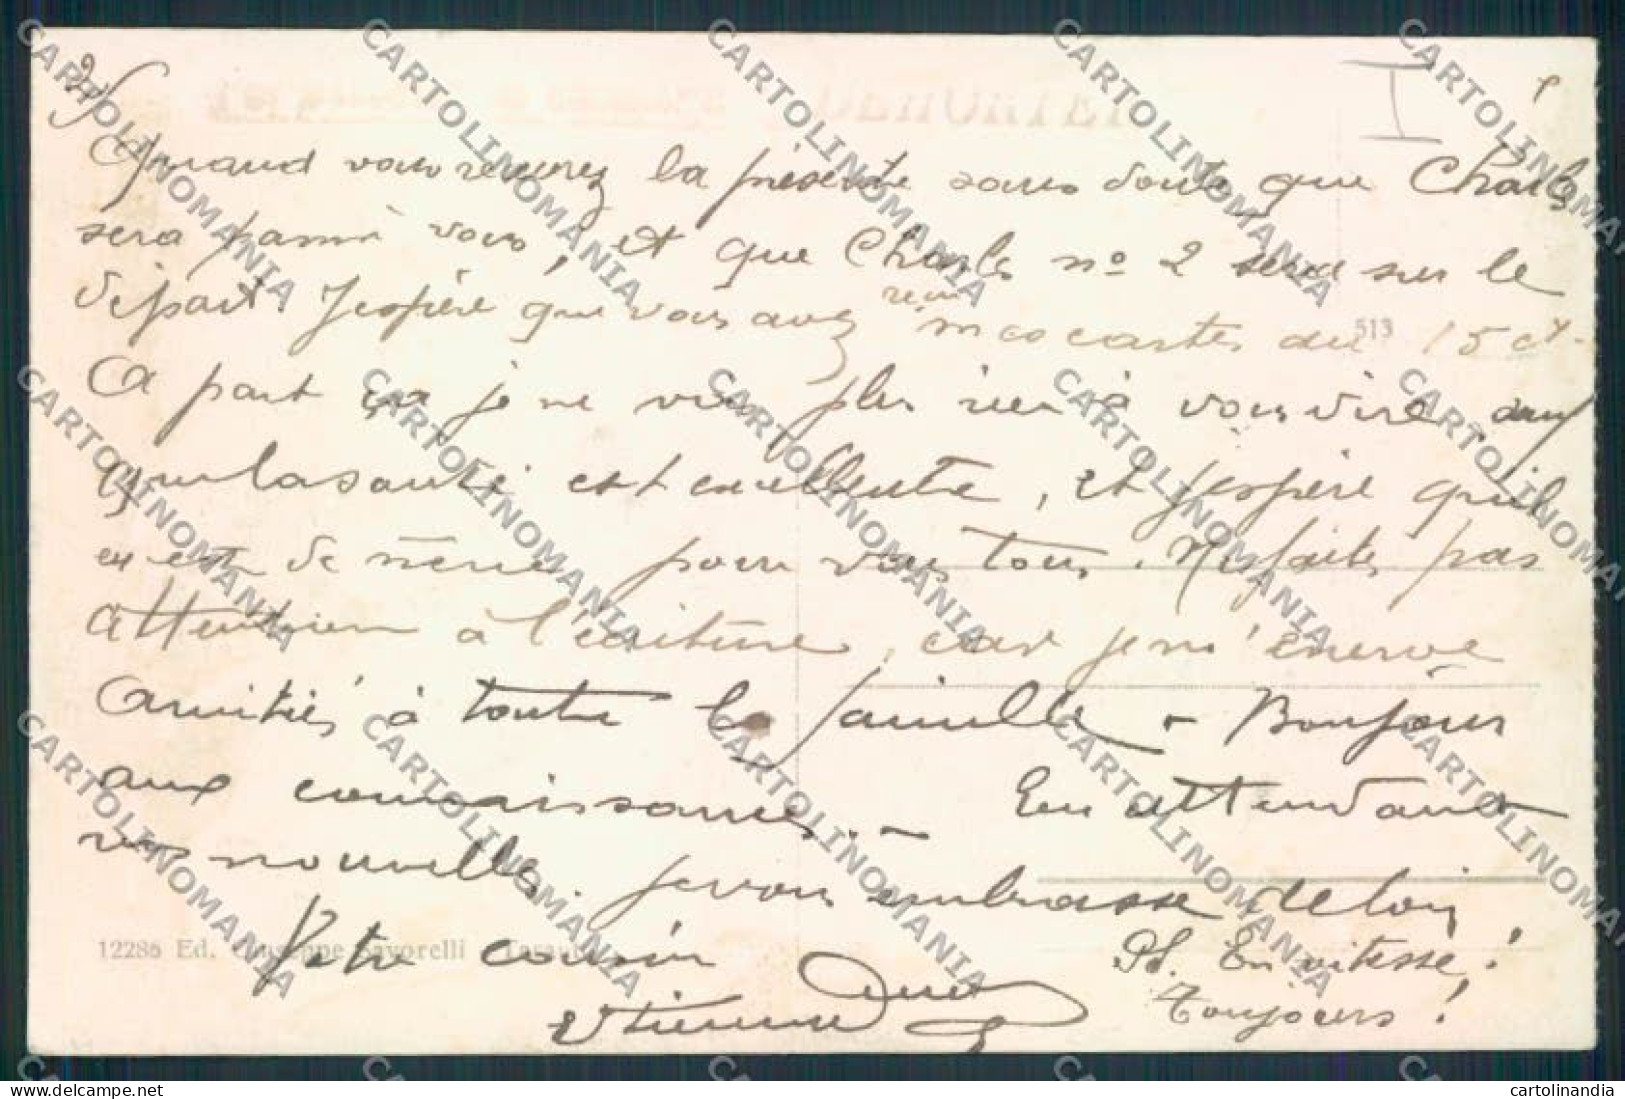 I
Quand vous recevrez la présente sans doute que Charles
sera parmi vous, et que Charles nº 2 sera sur le
départ. J'espère que vous avez reçu mes cartes du 15 ct.
513
A part ça je ne vois plus rien à vous dire, sauf
que la santé est excellente, et j'espère qu'il
en est de même pour vous tous. Ne faites pas
attention à l'écriture, car je m'énerve
Amitiés à toute la famille - Bonjour
aux connaissances. - En attendant
vos nouvelles. je vous embrasse de loin
12286 Ed. Giuseppe Savorelli
Votre cousin
PS. En vitesse!
Toujours!
Etienne
CARTOLINOMANIA
delcampe.net
cartolinandia